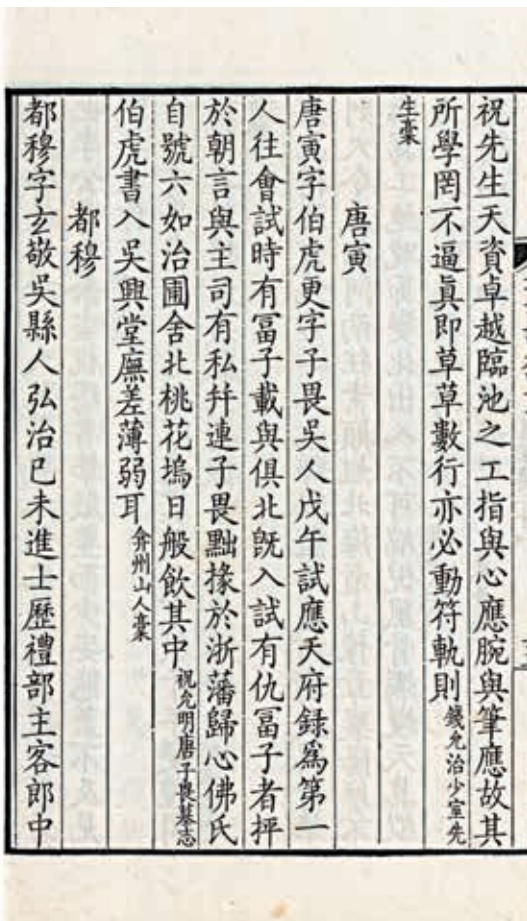 祝先生天資卓越臨池之工指與心應腕與筆應故其
所學罔不逼眞即草草數行亦必動符軌則錢允治少室先
生稾
唐寅
唐寅字伯虎更字子畏吳人戊午試應天府録爲第一
人往會試時有冨子載與俱北旣入試有仇冨子者抨
於朝言與主司有私幷連子畏黜掾於浙藩歸心佛氏
自號六如治圃舍北桃花塢日般飲其中祝允明唐子畏墓志
伯虎書入吳興堂廡差薄弱耳弇州山人稾
都穆
都穆字玄敬吳縣人弘治己未進士歷禮部主客郎中